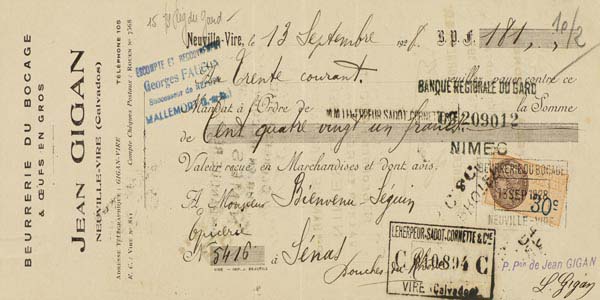 BEURRERIE DU BOCAGE
& ŒUFS EN GROS
JEAN GIGAN
NEUVILLE-VIRE (Calvados)
TÉLÉPHONE 105
ADRESSE TÉLÉGRAPHIQUE : GIGAN-VIRE
Compte Chèques Postaux : ROUEN N° 7368
R. C. : VIRE N° 841
Neuville-Vire, le 13 Septembre 1928 B.P.F. 181,
ESCOMPTE ET RECOUVREMENT
Georges
Successeur de
MALLEMORT
Trente courant. veuillez payer contre ce
BANQUE REGIONALE DU GARD
Mandat à l'Ordre de la Somme
MM LEHERPEUR-SADOT-CORNETTE
209012
NIMES
de Cent quatre vingt un francs.
Valeur reçue en Marchandises et dont avis.
BEURRERIE DU BOCAGE
13 SEP 1928
30c
NEUVILLE-VIRE
A Monsieur Bienvenu Séguin
Epicerie
N° 5416 à Sénas
Bouches du
LEHERPEUR-SADOT-CORNETTE & Cie
C 40894 C
VIRE (Calvados)
P. Pon de Jean GIGAN
L. Gigan